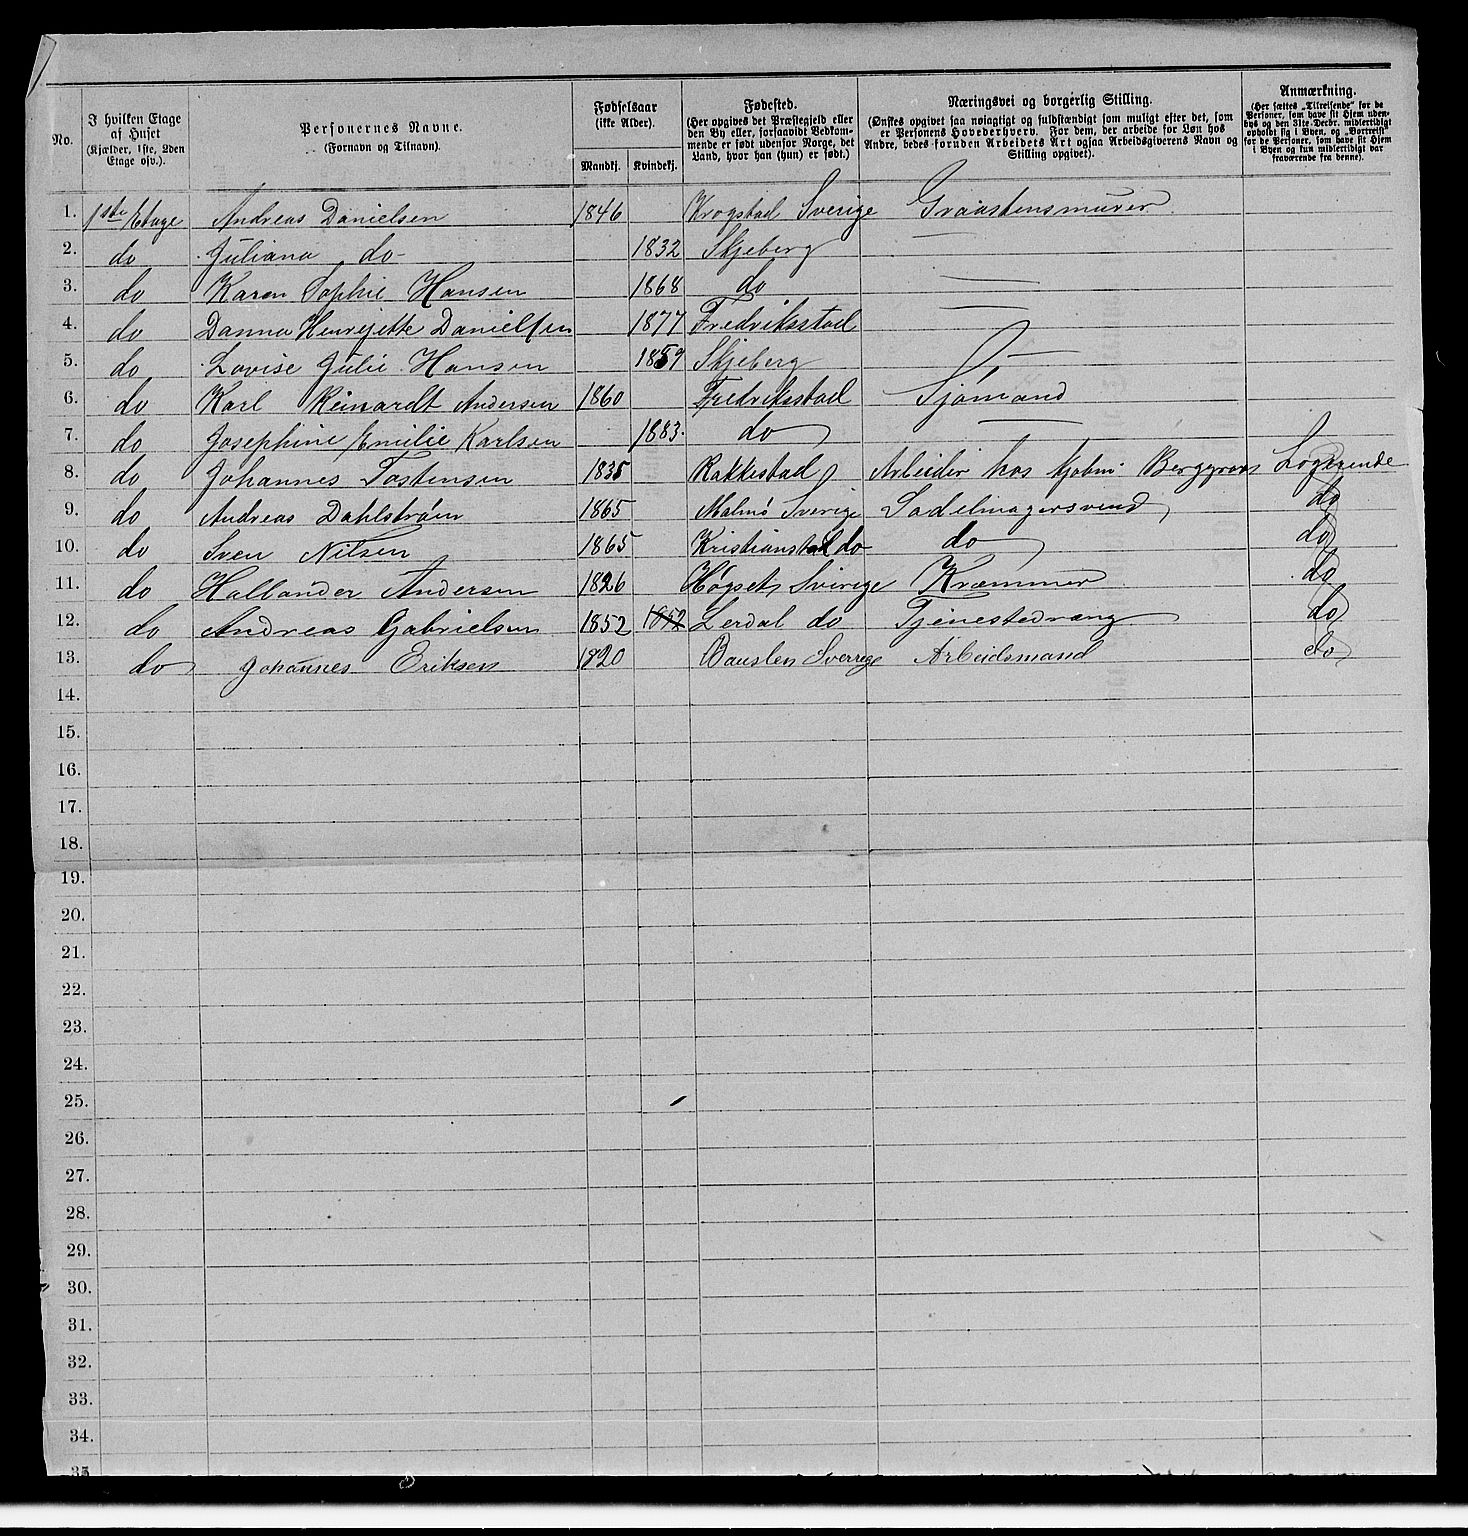 No. | I hvilken Etage af Huset (Kjælder, 1ste, 2den Etage osv.). | Personernes Navne. (Fornavn og Tilnavn). | Fødselsaar (ikke Alder). Mandkj. | Kvindekj. | Fødested. (Her opgives det Præstegjeld eller den By eller, forsaavidt Bedkommende er født udenfor Norge, det Land, hvor han (hun) er født.) | Næringsvei og borgerlig Stilling. (Ønskes opgivet saa nøiagtigt og fuldstændigt som muligt efter det, som er Personens Hovederhverv. For dem, der arbeide for Løn hos Andre, bedes foruden Arbeidets Art ogsaa Arbeidsgiverens Navn og Stilling opgivet). | Anmærkning. (Her sættes „Tilreisende“ for de Personer, som have sit Hjem udenbys og den 31te Decbr. midlertidigt opholdt sig i Byen, og „Bortreist“ for de Personer, som have sit Hjem i Byen og kun midlertidigt var fraværende fra denne).
1. 1ste Etage Andreas Danielsen 1846 Krogstad Sverige Graastensmurer
2. do Juliana do 1832 Skjeberg —
3. do Karen Sophie Hansen 1868 do —
4. do Danna Henrijette Danielsen 1877 Fredriksstad —
5. do Lovise Julie Hansen 1859 Skjeberg —
6. do Karl Reinardt Andersen 1860 Fredriksstad Sjømand
7. do Josephine Emilie Karlsen 1883. do —
8. do Johannes Tostensen 1835 Rakkestad Arbeider hos Kjøbm. Berggreen Logerende
9. do Andreas Dahlstrøm 1865 Malmø Sverige Sadelmagersvend do
10. do Sven Nilsen 1865 Kristianstad do do do
11. do Hallander Andersen 1826 Høgset Sverige Kræmmer do
12. do Andreas Gabrielsen 1852 1852 Lerdal do Tjenestedræng do
13. do Johannes Eriksen 1820 Sverrige Arbeidsmand do
14.
15.
16.
17.
18.
19.
20.
21.
22.
23.
24.
25.
26.
27.
28.
29.
30.
31.
32.
33.
34.
35